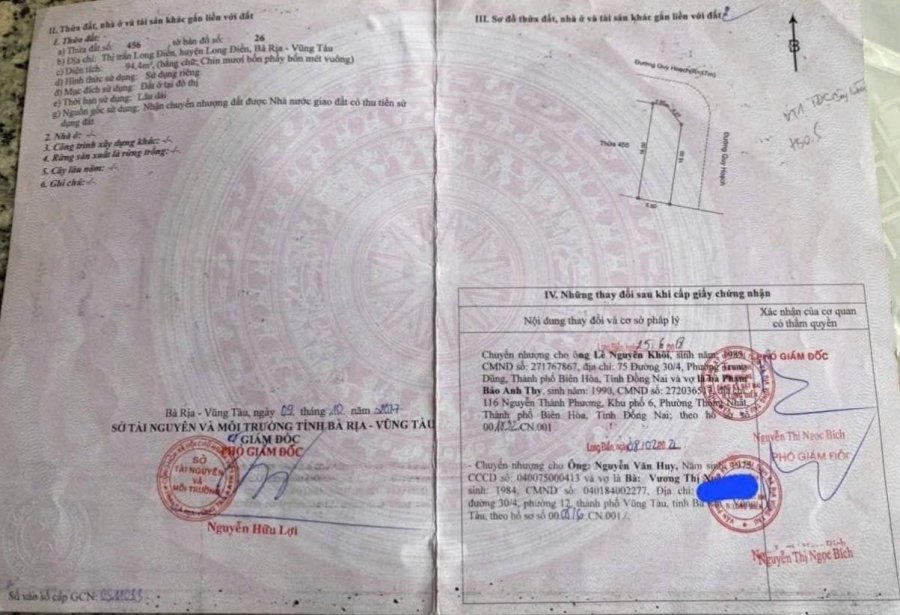 II. Thửa đất, nhà ở và tài sản khác gắn liền với đất
1. Thửa đất:
a) Thửa đất số: 456 tờ bản đồ số: 26
b) Địa chỉ: Thị trấn Long Điền, huyện Long Điền, Bà Rịa - Vũng Tàu
c) Diện tích: 94,4m², (bằng chữ: Chín mươi bốn phẩy bốn mét vuông)
d) Hình thức sử dụng: Sử dụng riêng
đ) Mục đích sử dụng: Đất ở tại đô thị
e) Thời hạn sử dụng: Lâu dài
g) Nguồn gốc sử dụng: Nhận chuyển nhượng đất được Nhà nước giao đất có thu tiền sử
dụng đất
2. Nhà ở: -/-
3. Công trình xây dựng khác: -/-
4. Rừng sản xuất là rừng trồng: -/-
5. Cây lâu năm: -/-
6. Ghi chú: -/-
Bà Rịa - Vũng Tàu, ngày 09 tháng 10 năm 2017
SỞ TÀI NGUYÊN VÀ MÔI TRƯỜNG TỈNH BÀ RỊA – VŨNG TÀU
GIÁM ĐỐC
PHÓ GIÁM ĐỐC
SỞ
TÀI NGUYÊN
VÀ
MÔI TRƯỜNG
Nguyễn Hữu Lợi
Số vào sổ cấp GCN:
III. Sơ đồ thửa đất, nhà ở và tài sản khác gắn liền với đất
B
Đường Quy Hoạch
Thửa 455
Đường Quy Hoạch
IV. Những thay đổi sau khi cấp giấy chứng nhận
Nội dung thay đổi và cơ sở pháp lý
Xác nhận của cơ quan
có thẩm quyền
Long Điền, ngày
Chuyển nhượng cho ông Lê Nguyên Khôi, sinh năm: 1985,
CMND số: 271767867, địa chỉ: 75 Đường 30/4, Phường Trung
Dũng, Thành phố Biên Hòa, Tỉnh Đồng Nai và vợ là bà Phạm
Bảo Anh Thy, sinh năm: 1990, CMND số:
116 Nguyễn Thành Phương, Khu phố 6, Phường Thống Nhất,
Thành phố Biên Hòa, Tỉnh Đồng Nai; theo hồ sơ số
.CN.001
PHÓ GIÁM ĐỐC
Nguyễn Thị Ngọc Bích
Long Điền, ngày
- Chuyển nhượng cho Ông: Nguyễn Văn Huy, Năm sinh: 1975,
CCCD số: 040075000413 và vợ là Bà: Vương Thị
sinh: 1984, CMND số: 040184002277. Địa chỉ:
đường 30/4, phường 12, thành phố Vũng Tàu, tỉnh Bà
Tàu, theo hồ sơ số .CN.001
PHÓ GIÁM ĐỐC
Nguyễn Thị Ngọc Bích